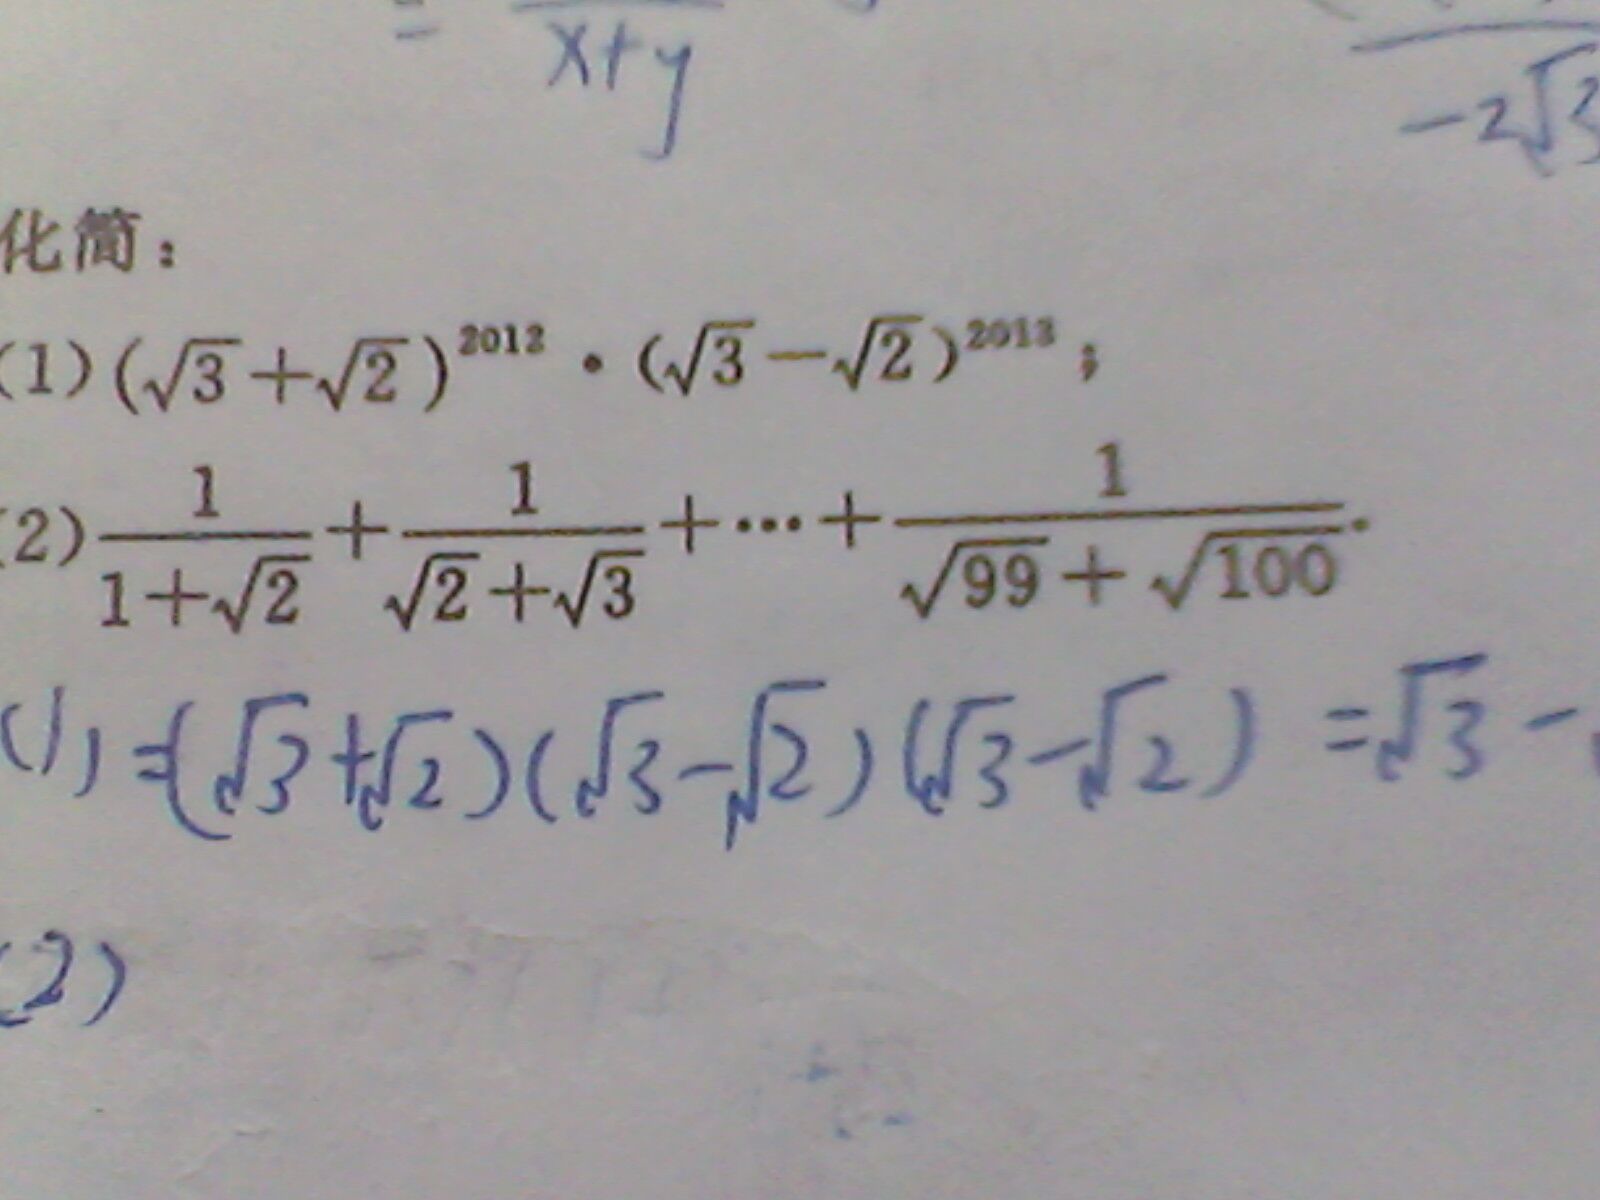 = x+y
-2√3
化简:
(1)(√3+√2)²⁰¹²·(√3-√2)²⁰¹³;
(2) 1/(1+√2) + 1/(√2+√3) + ··· + 1/(√99+√100).
(1) =(√3+√2)(√3-√2)(√3-√2) =√3-
(2)